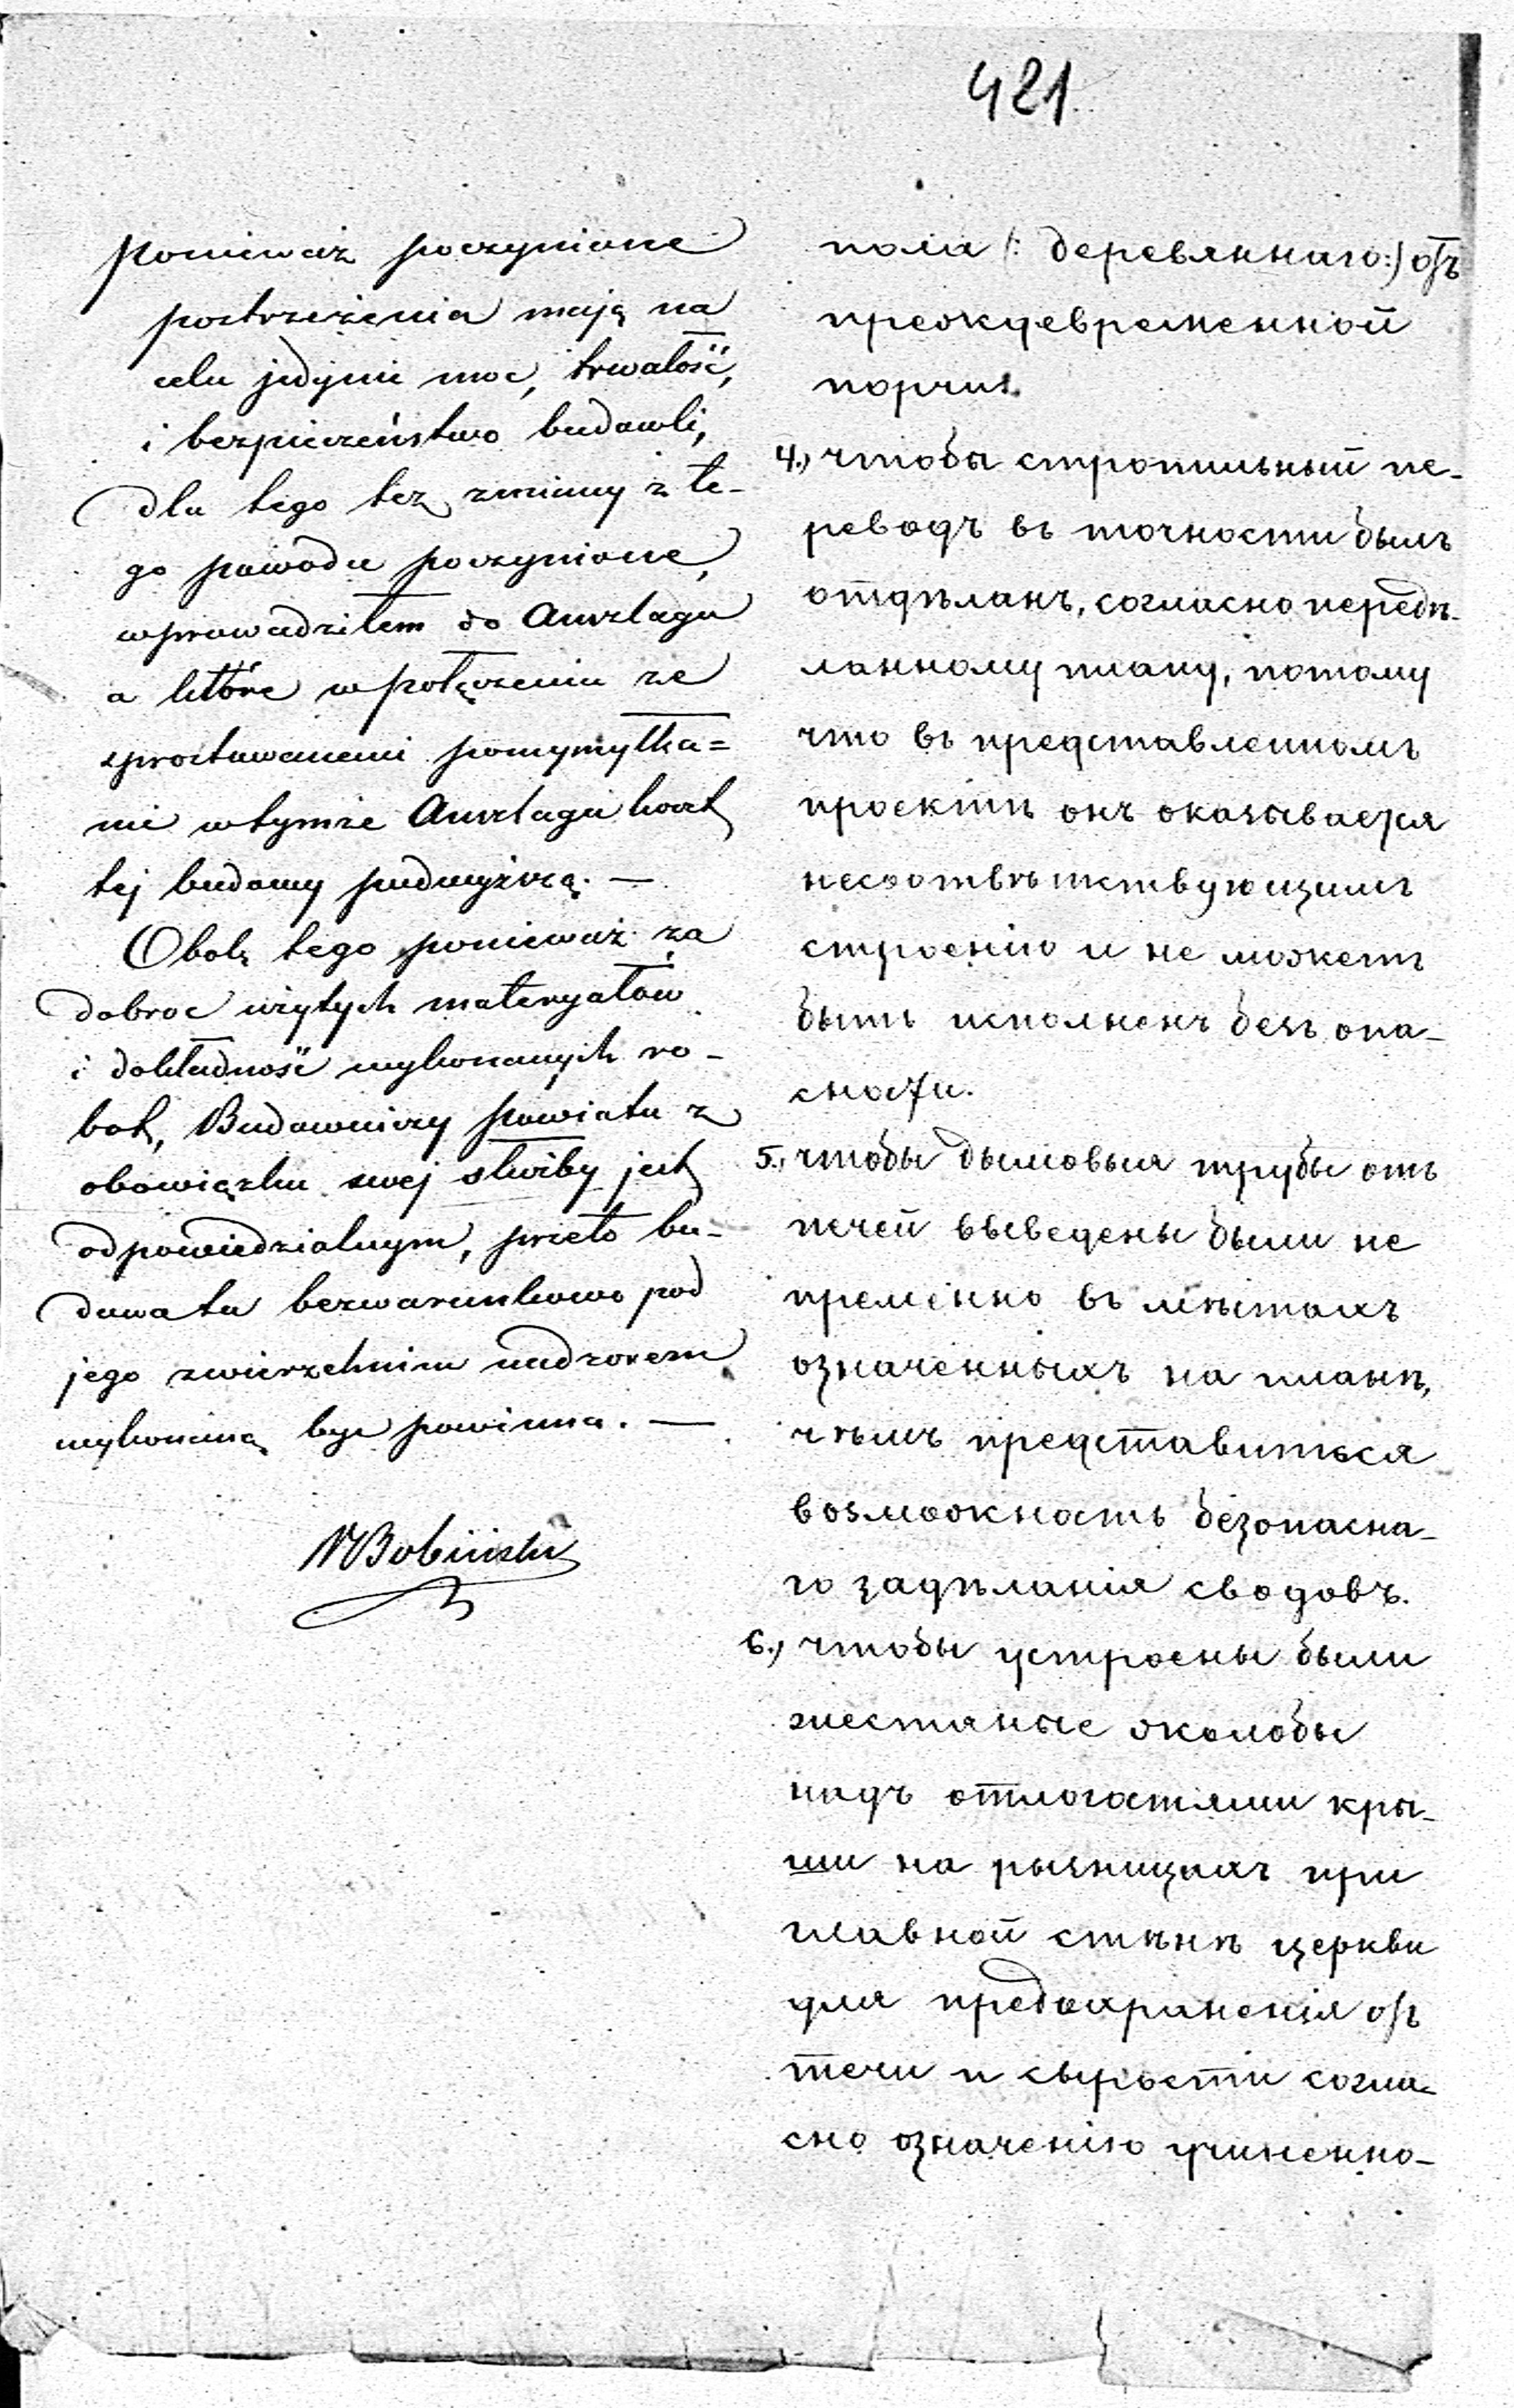 421
Ponieważ poczynione
postrzeżenia mają na
celu jedynie moc, trwałość,
i bezpieczeństwo budowli,
dla tego też zmiany z te-
go powodu poczynione,
wprowadziłem do Anszlagu
a które w połączeniu ze
sprostowanemi pomyłka=
mi w tymże Anszlagu koszt
tej budowy podwyższą. —
Obok tego ponieważ za
dobroc użytych materyałów
i dokładność wykonanych ro-
bot, Budowniczy Powiatu z
obowiązku swej służby jest
odpowiedzialnym, przeto bu-
dowa ta bezwarunkowo pod
jego zwierzchnim nadzorem
wykonaną byc powinna. —
Bobiński
пола (: деревяннаго:) отъ
преждевременной
порчи.
4.) чтобы стропильный пе-
реводъ въ точности былъ
отдѣланъ, согласно передѣ-
ланному плану, потому
что въ представленномъ
проектѣ онъ оказывается
несоотвѣтствующимъ
строенію и не можетъ
быть исполненъ безъ опа-
сности.
5., чтобы дымовыя трубы отъ
печей выведены были не
премѣнно въ мѣстахъ
означенныхъ на планѣ,
чѣмъ представиться
возможность безопасна-
го задѣланія сводовъ.
6.) чтобы устроены были
жестяные жолобы
надъ отлогостями кры-
ши на ризницахъ при
главной стѣнѣ церкви
для предохраненія отъ
течи и сырости согла-
сно означенію учиненно-